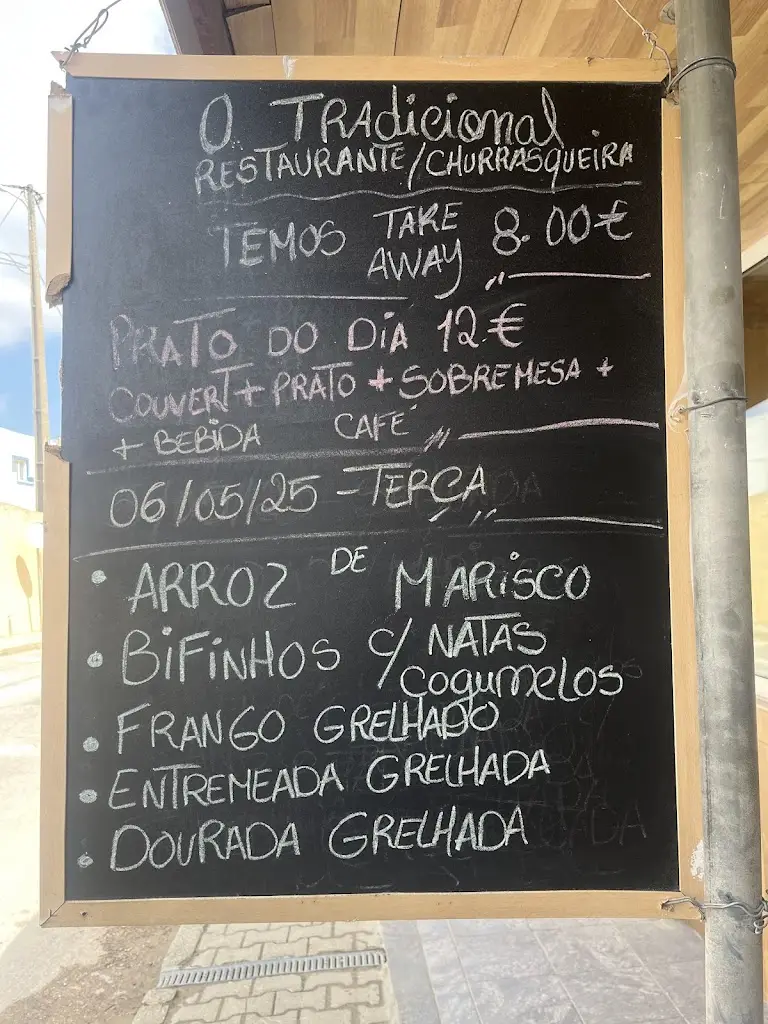 O TRAdicional
RESTAURANTE/CHURRASQUEIRA
TEMOS TAKE AWAY 8.00€
PRATO DO DIA 12€
COUVERT + PRATO + SOBREMESA +
+ BEBIDA CAFÉ
06/05/25 - TERÇA
• ARROZ DE MARISCO
• BIFINHOS c/ NATAS
cogumelos
• FRANGO GRELHADO
• ENTREMEADA GRELHADA
• DOURADA GRELHADA